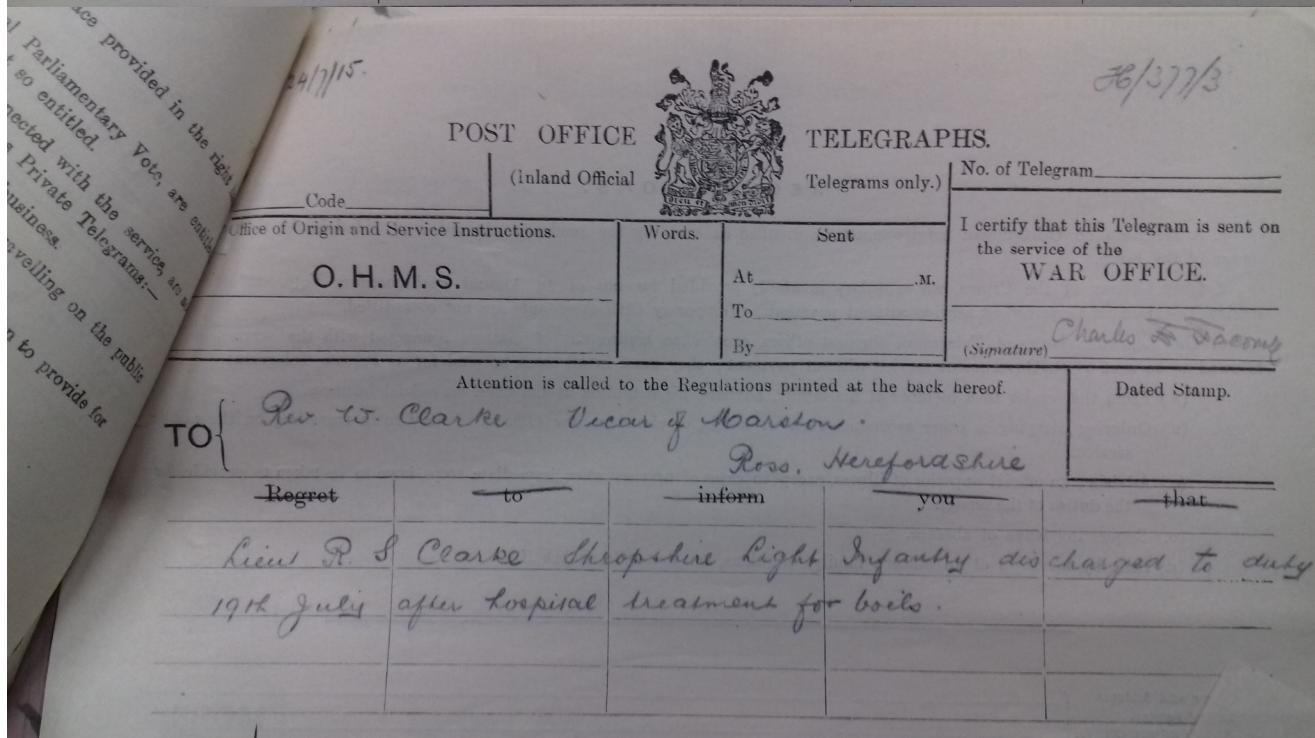 ce provided in the right
l Parliamentary Vote, are entitled
t so entitled.
nected with the service, are
s Private Telegrams:—
usiness.
velling on the public
n to provide for
24/7/15.
H/377/3
POST OFFICE TELEGRAPHS.
(Inland Official Telegrams only.)
No. of Telegram
Code
Office of Origin and Service Instructions.
Words.
Sent
I certify that this Telegram is sent on
the service of the
WAR OFFICE.
O. H. M. S.
At .M.
To
By
(Signature) Charles
Attention is called to the Regulations printed at the back hereof.
Dated Stamp.
TO Rev. W. Clarke Vicar of Marston.
Ross, Herefordshire
Regret to inform you that
Lieut R. S Clarke Shropshire Light Infantry discharged to duty
19th July after hospital treatment for boils.